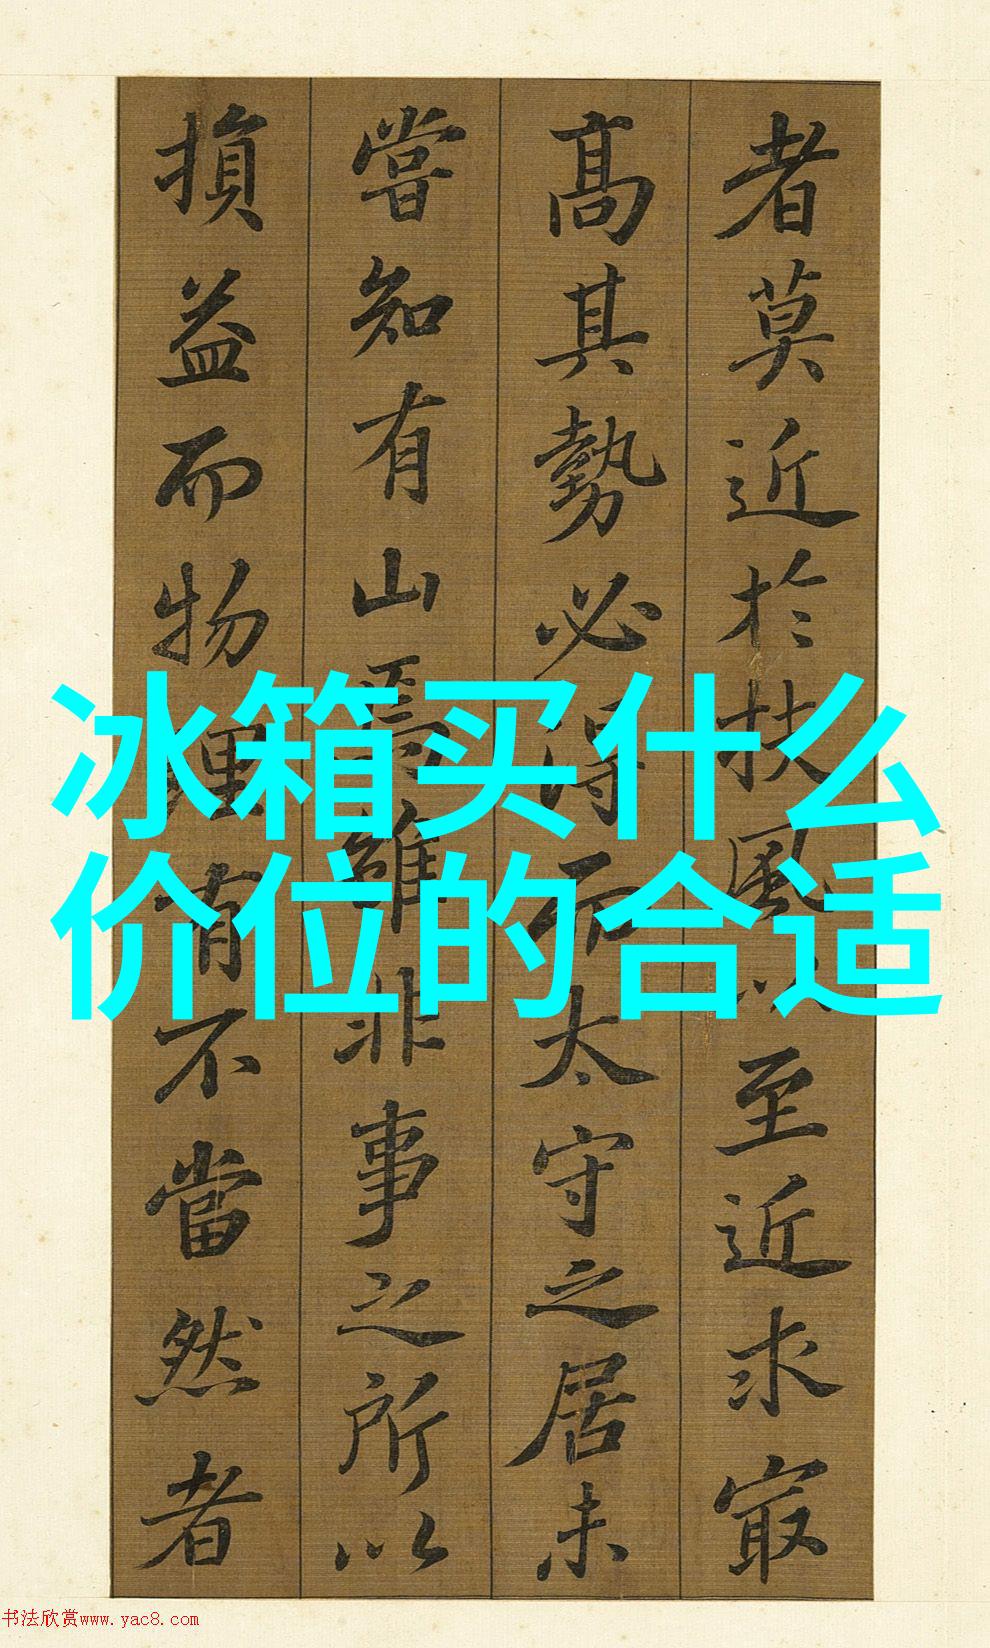 者莫近於扶風以至近求㝡
髙其勢必得而太守之居未
嘗知有山焉雖非事之所以
損益而物理有不當然者
冰箱买什么
价位的合适
书法欣赏www.yac8.com